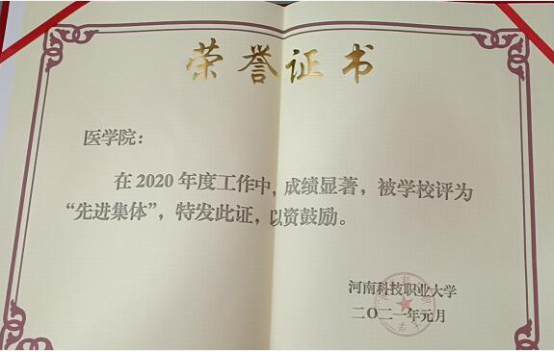 荣誉证书
医学院：
在2020年度工作中，成绩显著，被学校评为
“先进集体”，特发此证，以资鼓励。
河南科技职业大学
二〇二一年元月